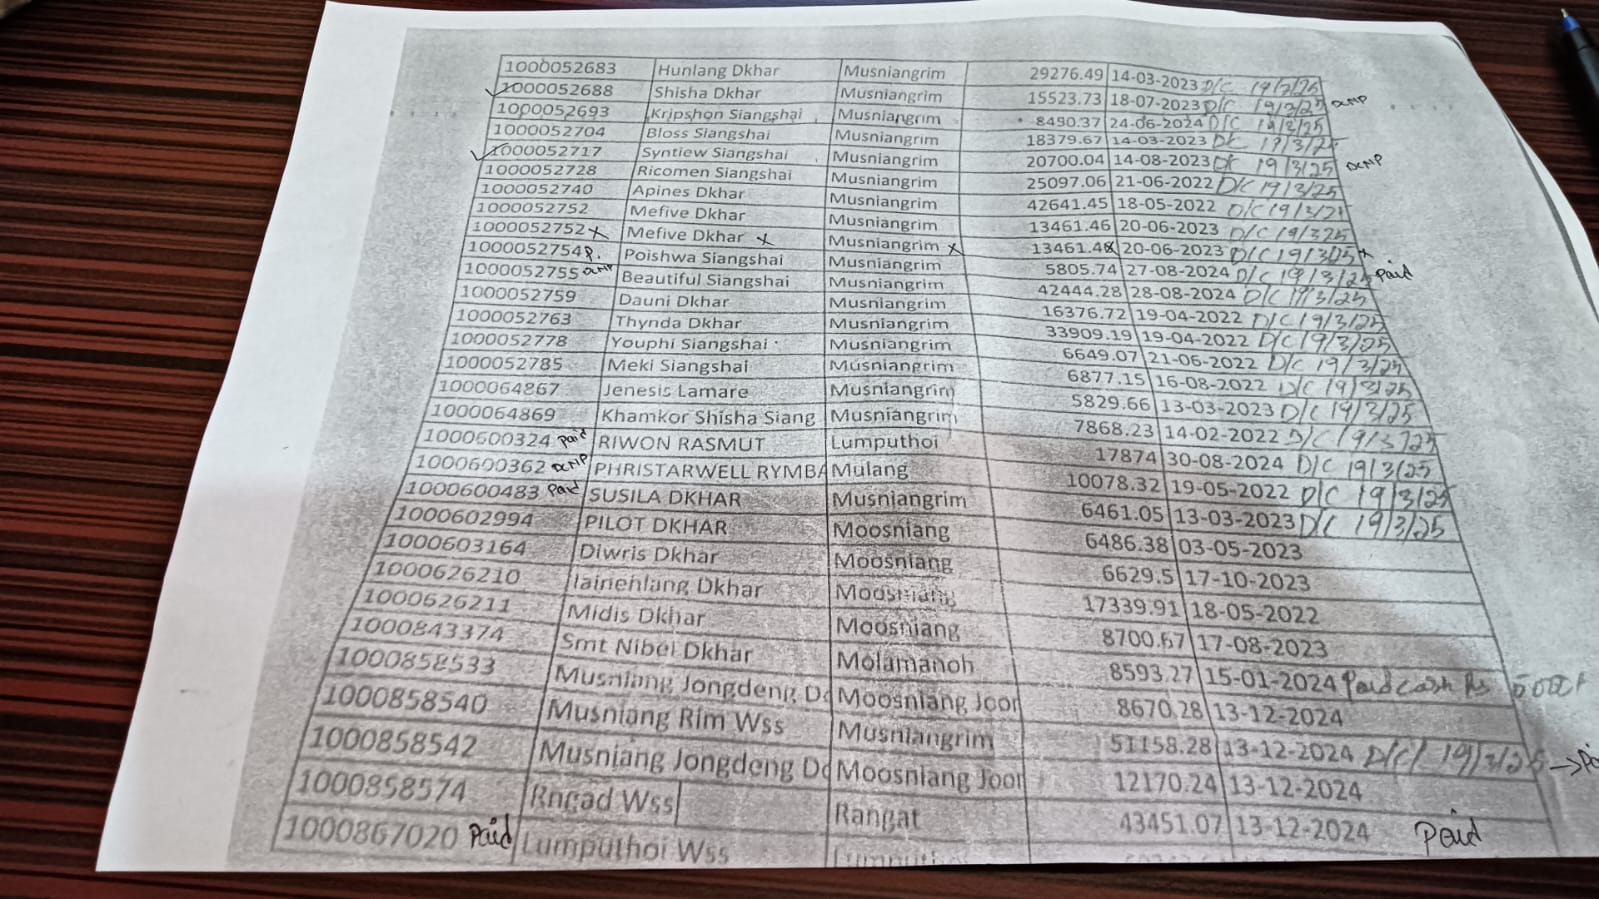 1000052683 Hunlang Dkhar Musniangrim 29276.49 14-03-2023 D/C 19/3/25
1000052688 Shisha Dkhar Musniangrim 15523.73 18-07-2023 D/C 19/3/25 DCNP
1000052693 Kripshon Siangshai Musniangrim 8490.37 24-06-2024 D/C 19/3/25
1000052704 Bloss Siangshai Musniangrim 18379.67 14-03-2023 D/C 19/3/25
1000052717 Syntiew Siangshai Musniangrim 20700.04 14-08-2023 D/C 19/3/25 DCNP
1000052728 Ricomen Siangshai Musniangrim 25097.06 21-06-2022 D/C 19/3/25
1000052740 Apines Dkhar Musniangrim 42641.45 18-05-2022 D/C 19/3/25
1000052752 Mefive Dkhar Musniangrim 13461.46 20-06-2023 D/C 19/3/25
1000052752 x Mefive Dkhar x Musniangrim x 13461.46 20-06-2023 D/C 19/3/25 x
1000052754 P. Poishwa Siangshai Musniangrim 5805.74 27-08-2024 D/C 19/3/25 Paid
1000052755 DCNP Beautiful Siangshai Musniangrim 42444.28 28-08-2024 D/C 19/3/25
1000052759 Dauni Dkhar Musniangrim 16376.72 19-04-2022 D/C 19/3/25
1000052763 Thynda Dkhar Musniangrim 33909.19 19-04-2022 D/C 19/3/25
1000052778 Youphi Siangshai Musniangrim 6649.07 21-06-2022 D/C 19/3/25
1000052785 Meki Siangshai Musniangrim 6877.15 16-08-2022 D/C 19/3/25
1000064867 Jenesis Lamare Musniangrim 5829.66 13-03-2023 D/C 19/3/25
1000064869 Khamkor Shisha Siang Musniangrim 7868.23 14-02-2022 D/C 19/3/25
1000600324 Paid RIWON RASMUT Lumputhoi 17874 30-08-2024 D/C 19/3/25
1000600362 DCNP PHRISTARWELL RYMBA Mulang 10078.32 19-05-2022 D/C 19/3/25
1000600483 Paid SUSILA DKHAR Musniangrim 6461.05 13-03-2023 D/C 19/3/25
1000602994 PILOT DKHAR Moosniang 6486.38 03-05-2023
1000603164 Diwris Dkhar Moosniang 6629.5 17-10-2023
1000626210 Iainehlang Dkhar Moosniang 17339.91 18-05-2022
1000626211 Midis Dkhar Moosniang 8700.67 17-08-2023
1000843374 Smt Nibei Dkhar Molamanoh 8593.27 15-01-2024 Paid cash Rs
1000858533 Musniang Jongdeng Do Moosniang Joor 8670.28 13-12-2024
1000858540 Musniang Rim Wss Musniangrim 51158.28 13-12-2024 D/C/ 19/3/25 →
1000858542 Musniang Jongdeng Do Moosniang Joor 12170.24 13-12-2024
1000858574 Rngad Wss Rangat 43451.07 13-12-2024 Paid
1000867020 Paid Lumputhoi Wss